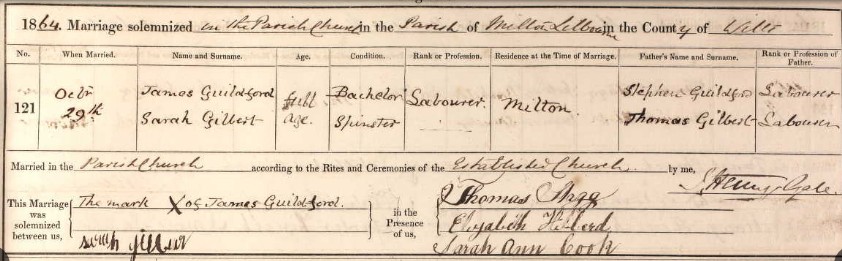 1864. Marriage solemnized in the Parish Church in the Parish of Milton Lilbourne in the County of Wilts
No. When Married. Name and Surname. Age. Condition. Rank or Profession. Residence at the Time of Marriage. Father's Name and Surname. Rank or Profession of Father.
121 Octr 29th James Guildford full age. Bachelor Labourer. Milton Stephen Guildford Labourer
Sarah Gilbert Spinster Thomas Gilbert Labourer
Married in the Parish Church according to the Rites and Ceremonies of the Established Church by me,
This Marriage was solemnized between us, The mark X of James Guildford.
in the Presence of us, Thomas
Elizabeth
Sarah Ann Cook